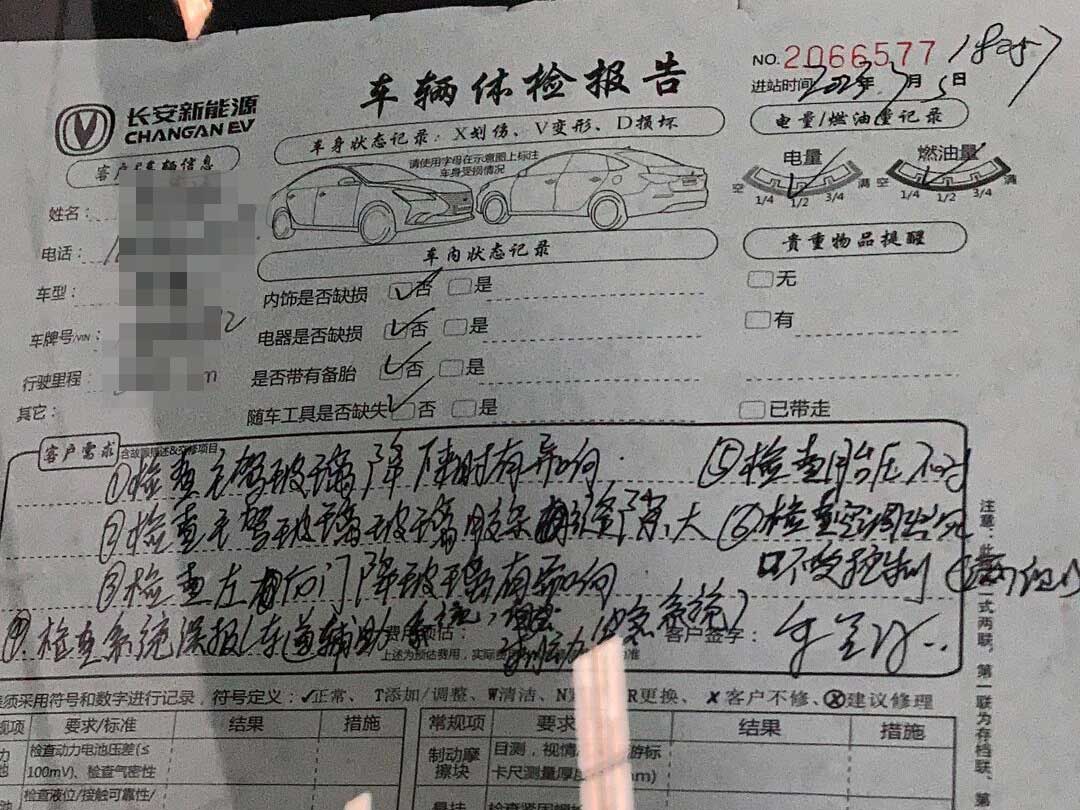 NO. 2066577
进站时间 2023年 月 5日
车辆体检报告
长安新能源
CHANGAN EV
车身状态记录：X划伤、V变形、D损坏
电量/燃油量记录
请使用字母在示意图上标注
车身受损情况
电量
燃油量
空 1/4 1/2 3/4 满
空 1/4 1/2 3/4 满
姓名：
电话：
车型：
车牌号/VIN：
行驶里程：
其它：
车内状态记录
内饰是否缺损 否 是
电器是否缺损 否 是
是否带有备胎 否 是
随车工具是否缺失 否 是
贵重物品提醒
无
有
已带走
客户需求 含故障描述&交修项目
①检查主驾玻璃降下来时有异响
②检查主驾玻璃玻璃胶条 缝隙大
③检查左后门降玻璃有异响
④检查系统误报（车道辅助系统， 系统）
⑤检查胎压不对
⑥检查空调出气
口不受控制
费用预估：
上述为预估费用，实际费
客户签字：
须采用符号和数字进行记录，符号定义：✓正常、T添加/调整、W清洁、 R更换、✗客户不修、ⓧ建议修理
规项 要求/标准 结果 措施
常规项 要求 结果 措施
检查动力电池压差(≤
100mV)、检查气密性
检查液位/接触可靠性/
制动摩
擦块
目测，视情 游标
卡尺测量厚度 mm)
悬挂
注意：此 一式两联，第一联为存档联，第